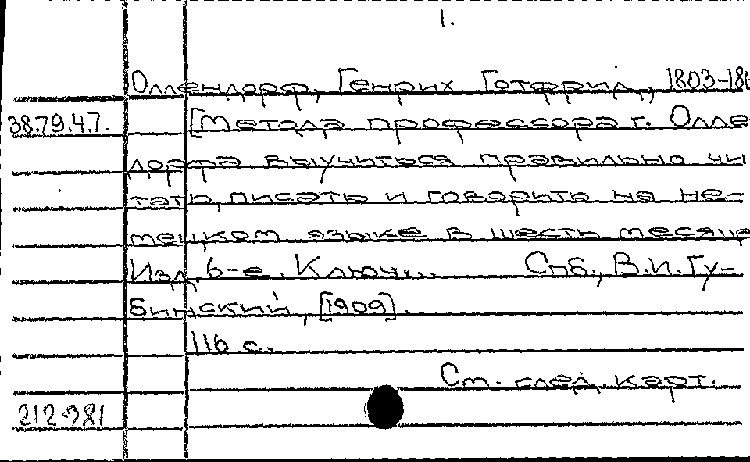 1.
Оллендорф, Генрих Готфрид, 1803-186
38.79.47. [Метода профессора г. Олле
дорфа выучиться правильно чи
тать, писать и говорить на не-
мецком языке в шесть месяце
Изд. 6-е. Ключ... Спб., В.И. Гу-
бинский, [1909].
116 с.
См. след. карт.
212.981